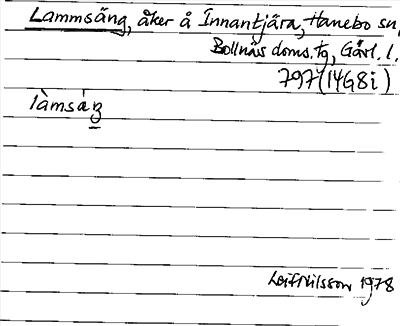 Lammsäng, åker å Innantjära, Hanebo sn,
Bollnäs doms. tg, Gävl. l.
797 (14G8i)
làmsáŋ
Leif Nilsson 1978